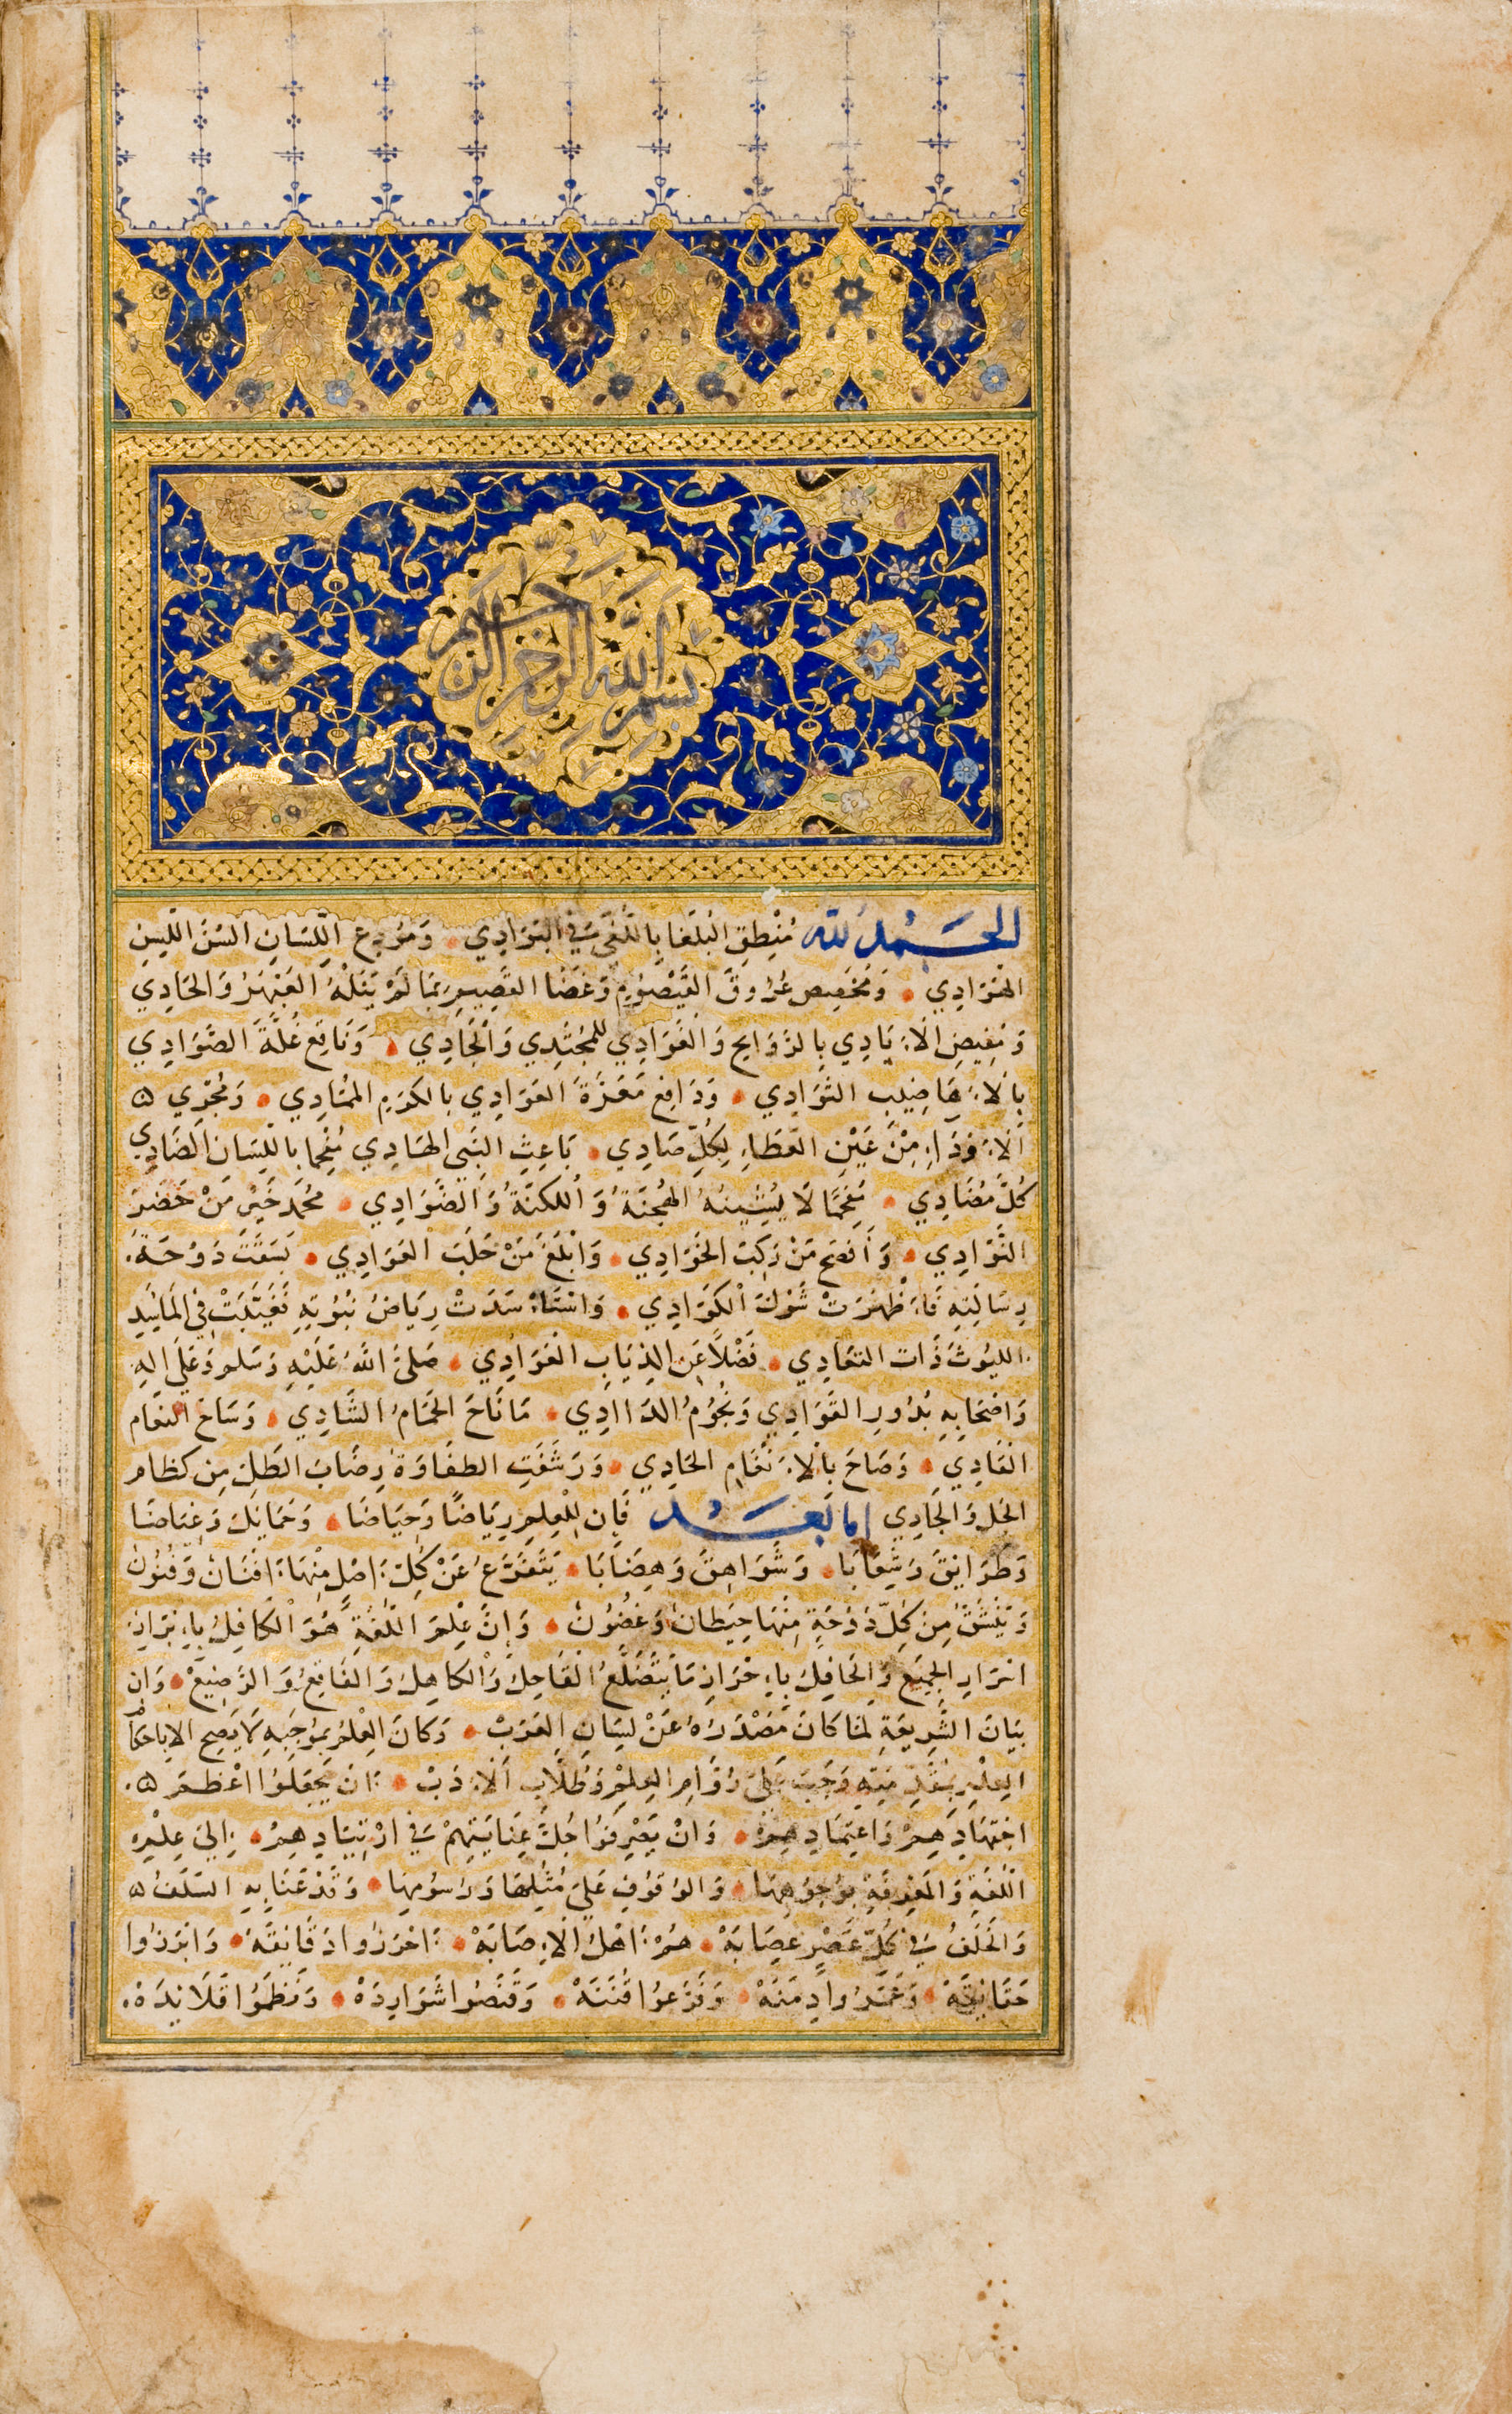 بسم الله الرحمن الرحيم
الحَمْدُ لله مُنْطِقِ البُلَغَا بِاللُّغَى فِي البَوَادِي وَمُودِع اللِّسَانِ السُنَ اللَّسِنِ
الهَوَادِي وَمُخَصِّص عُرُوقَ القَيْصُوم وَغَضَا القَصِيم بمَا لَمْ يَنَلْهُ العَبْهَرُ وَالجَادِي
وَمُفِيضِ الأَيَادِي بِالرَوَايح وَالغَوَادِي لِلمُجْتَدِي وَالجَادِي وَنَاقِعِ غُلَّةَ الصَّوَادِي
بالأَهَاضِيب الثَوَادِي وَدَافِع مَعَرَّةَ العَوَادِي بالكَرَمِ المُمَادِي وَمُجْرِي
الأَودَاءِ مِنْ عَيْنِ العَطَاءِ لِكُلِّ صَادِي بَاعِثِ النَبِي الهَادِي مُفْحِمًا بِاللِّسَان الضَادِي
كُلَّ مُضَادِي مُفَخَّمًا لَا يُشِينُهُ الهُجْنَةُ وَاللكنَةُ وَالضَوَادِي مُحَمَّد خَيْرِ مَنْ حَضَرَ
النَّوَادِي وَأَفصَح مَنْ رَكِبَ الخَوَادِي وَابْلَغَ مَنْ حَلَبَ العَوَادِي بَسَقَتْ دَوْحَة
رِسَالَتِهِ فَاظْهَرَتْ شَوْكَ الكَوَادِي وَاسْتَاسَدَتْ رِيَاضُ نُبُوتِهِ فَعَيَّتْ فِي المَآسِدِ
الليُوثَ ذَات التعَادِي فَضْلًا عَنِ الذِيَابِ العَوَادِي صَلىَّ اللهُ عَلَيْهِ وَسَلم وَعَلَى الِهِ
وَاصْحَابِهِ بُدُورِ القَوَادِي وَنُجُومُ الدَآدِي مَا نَاحَ الحَمَامُ الشَادِي وَسَاحَ النعَام
القَادِي وَصَاحَ بِالأَنْغَامِ الحَادِي وَرَشَفَتِ الطفَاوَة رِضَابَ الطَلِّ مِن كظَام
الجُل وَالجَادِي اما بَعْدُ فَإِن لِلْعِلم رِيَاضًا وَحِيَاضًا وَخَمَايِلَ وَغِيَاضًا
وَطَرَايِقَ وَشِعَابَا وَشَوَاهِقَ وَهِضَابَا يَتَفَرَّعُ عَنْ كُلِّ اصْلٍ مِنْهَا افْنَانٌ وَفُنُونٌ
وَيَنْشَقُّ مِن كُلّ دَوْحَةٍ مِنْهَا خِيطَانٌ وَغُصُونٌ وَإنَّ عِلْمَ اللُّغَةِ هُوَ الكَافِلُ بِابْرَازِ
اسْرَارِ الجَمِيْعِ وَالحَافِلُ بِاحْرَازِ مَا يَتَضَلَّعُ القَاحِلُ وَالكَاهِلُ وَالفَاقِعُ وَالرَضِيعْ وَان
بيَانَ الشَّرِيعَةِ لمَا كَانَ مَصْدَرُهُ عَنْ لِسَانِ العَرَبْ وَكَانَ العِلْمُ بمُوجَبِهِ لَا يَصِح الا باحكَام
العِلْمِ بِمُقَدِّمَتِهِ وَجَبَ عَلَى رُوَامِ العِلْم وَطُلَّابِ الأَدَبْ ان يجعَلُوا اعْظمَ
اجْتهَادِهِمْ وَاعتِمَادِهِمْ وَانْ يَصْرِفُوا جُلَّ عِنَايَتِهِمْ فِي ارْتِيَادِهِمْ إلَى عِلْمِ
اللُّغَةِ وَالمَعْرِفَةِ بوُجُوهِهَا وَالوقوُفِ عَلَى مُثُلِهَا وَرُسُومِهَا وَقَدْ عُنِىَ بِهِ السَلَفُ
وَالخَلَفُ فِي كُلِّ عَصْرٍ عِصَابَهْ هُمْ اهْلُ الأَصَابَهْ احْرَزُوا دَقَايِقَهُ وَابْرَزُوا
حَقَايِقَهْ وَعَمَرُوا دِمَنَهْ وَفَرَعُوا قُنَنَهْ وَقَنَصُوا شَوَارِدَهْ وَنَظمُوا قَلَايِدَهْ